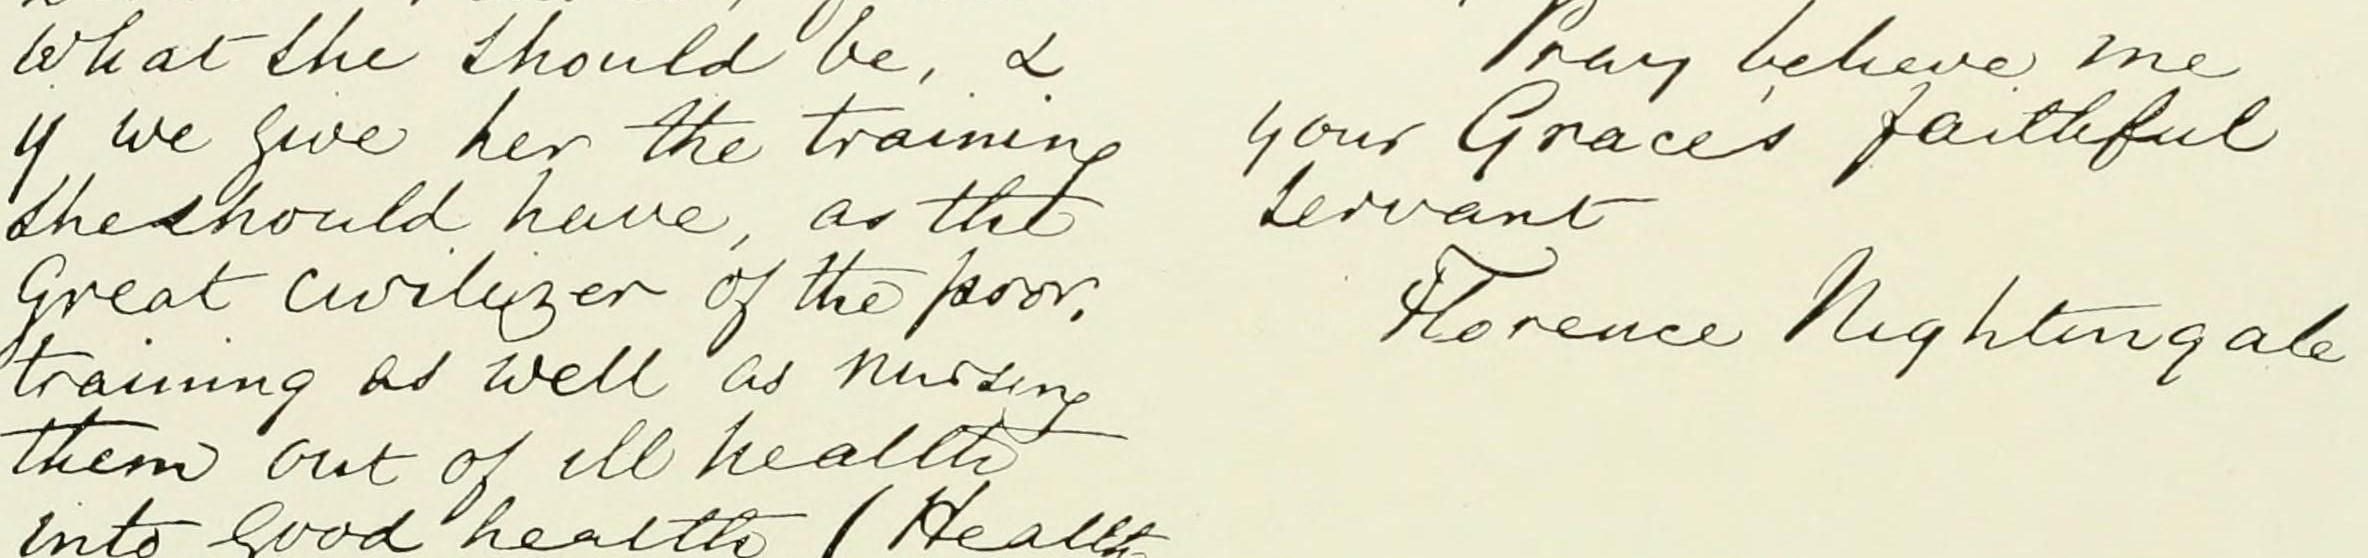 what she should be, &
if we give her the training
she should have, as the
Great civilizer of the poor,
training as well as nursing
them out of ill health
into good health (Health
Pray believe me
your Grace's faithful
servant
Florence Nightingale